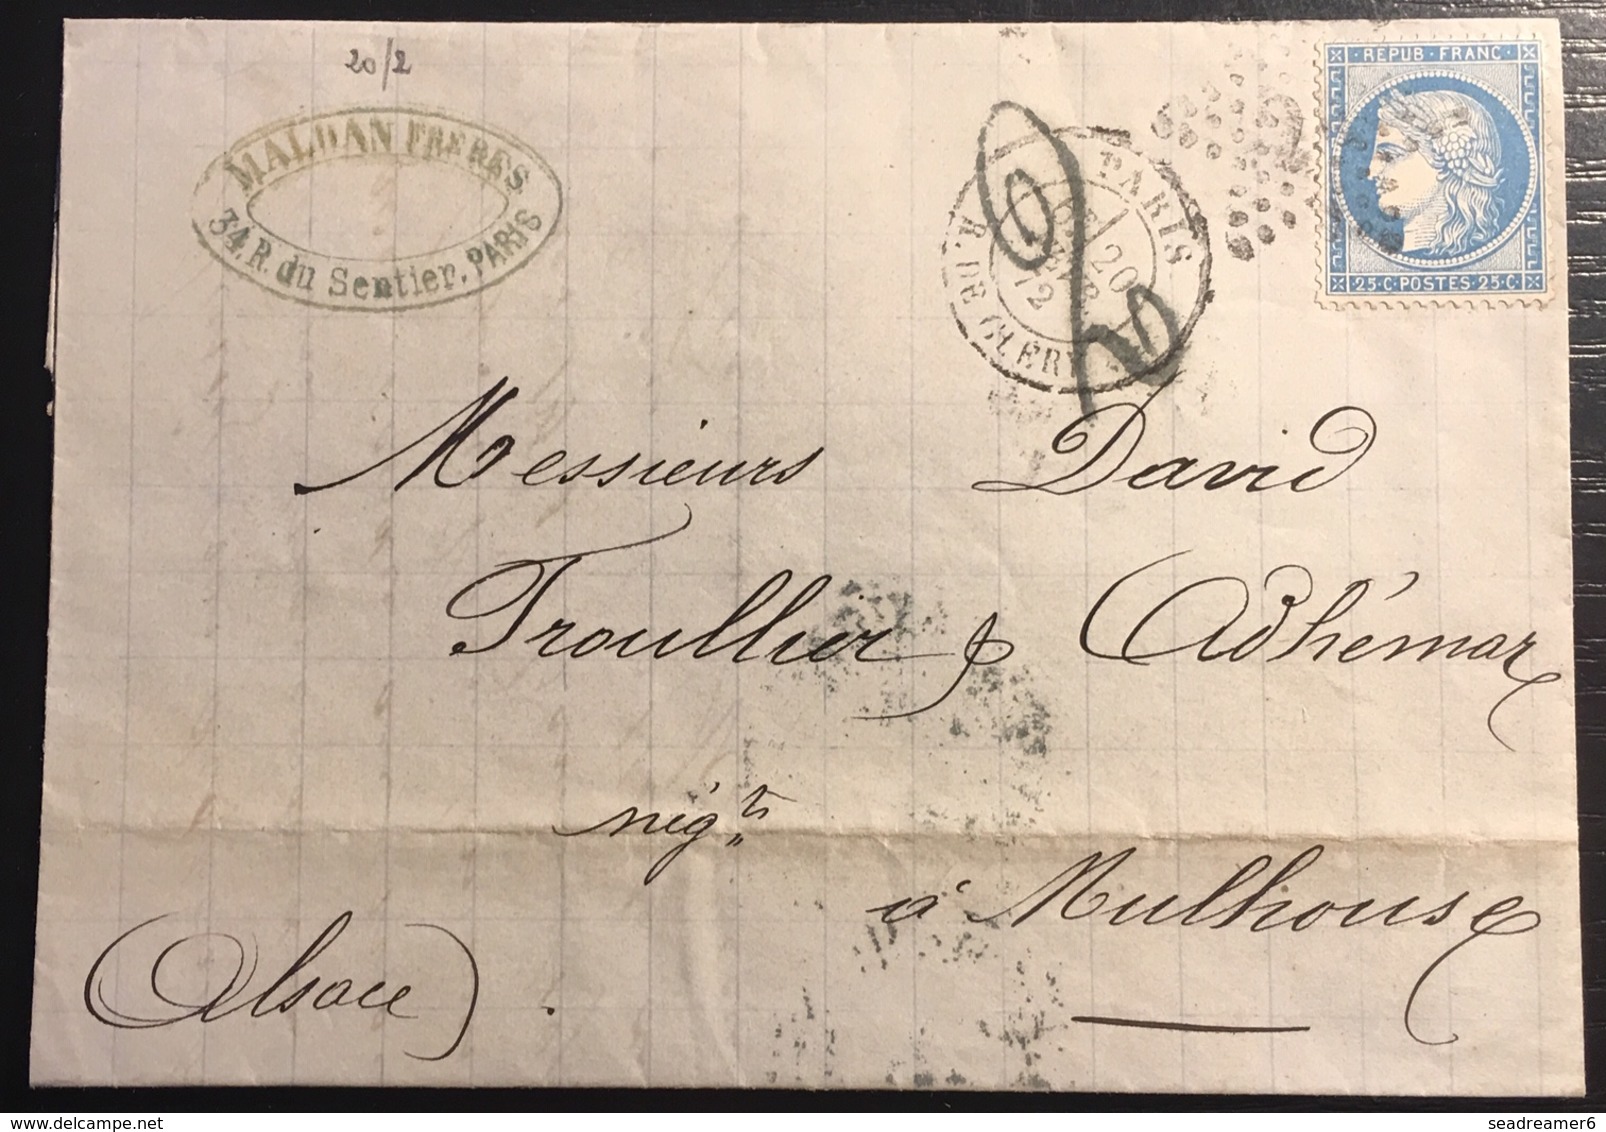 20/2
MALDAN FRERES.
34, R. du Sentier, PARIS
PARIS
20
FEVR.
72
R. DE CLERY
REPUB · FRANC
25 · C · POSTES · 25 · C
Messieurs David
Troullier & Adhémar
nég.ts
à Mulhouse
(Alsace).
seadreamer6